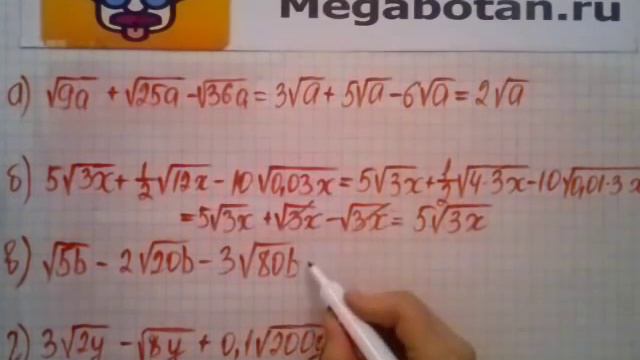 Megabotan.ru
а) √9a + √25a - √36a = 3√a + 5√a - 6√a = 2√a
б) 5√3x + 1/2√12x - 10√0,03x = 5√3x + 1/2√4·3x - 10√0,01·3x
= 5√3x + √3x - √3x = 5√3x
в) √5b - 2√20b - 3√80b
г) 3√2y - √8y + 0,1√200y